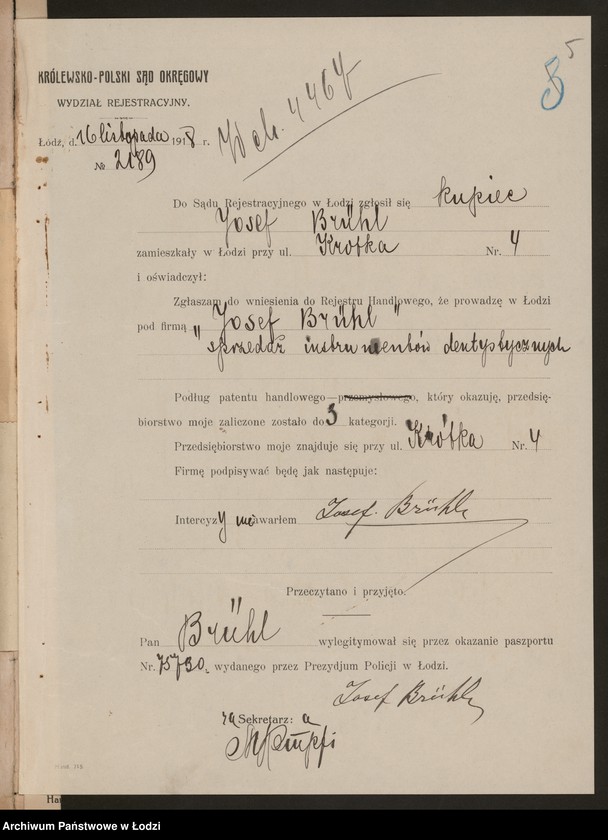 5
5
KRÓLEWSKO-POLSKI SĄD OKRĘGOWY
WYDZIAŁ REJESTRACYJNY.
Łódź, d. 16 listopada 1918 r.
№ 2189
4464
Do Sądu Rejestracyjnego w Łodzi zgłosił się kupiec
Josef Brühl
zamieszkały w Łodzi przy ul. Krotka Nr. 4
i oświadczył:
Zgłaszam do wniesienia do Rejestru Handlowego, że prowadzę w Łodzi
pod firmą „Josef Brühl"
sprzedaż instrumentów dentystycznych
Podług patentu handlowego—przemysłowego, który okazuję, przedsię-
biorstwo moje zaliczone zostało do 3 kategorji.
Przedsiębiorstwo moje znajduje się przy ul. Krótka Nr. 4
Firmę podpisywać będę jak następuje:
Intercyzy nie zawarłem Josef Brühl
Przeczytano i przyjęto.
Pan Brühl wylegitymował się przez okazanie paszportu
Nr. 75730, wydanego przez Prezydjum Policji w Łodzi.
Josef Brühl
za Sekretarz: a
Archiwum Państwowe w Łodzi